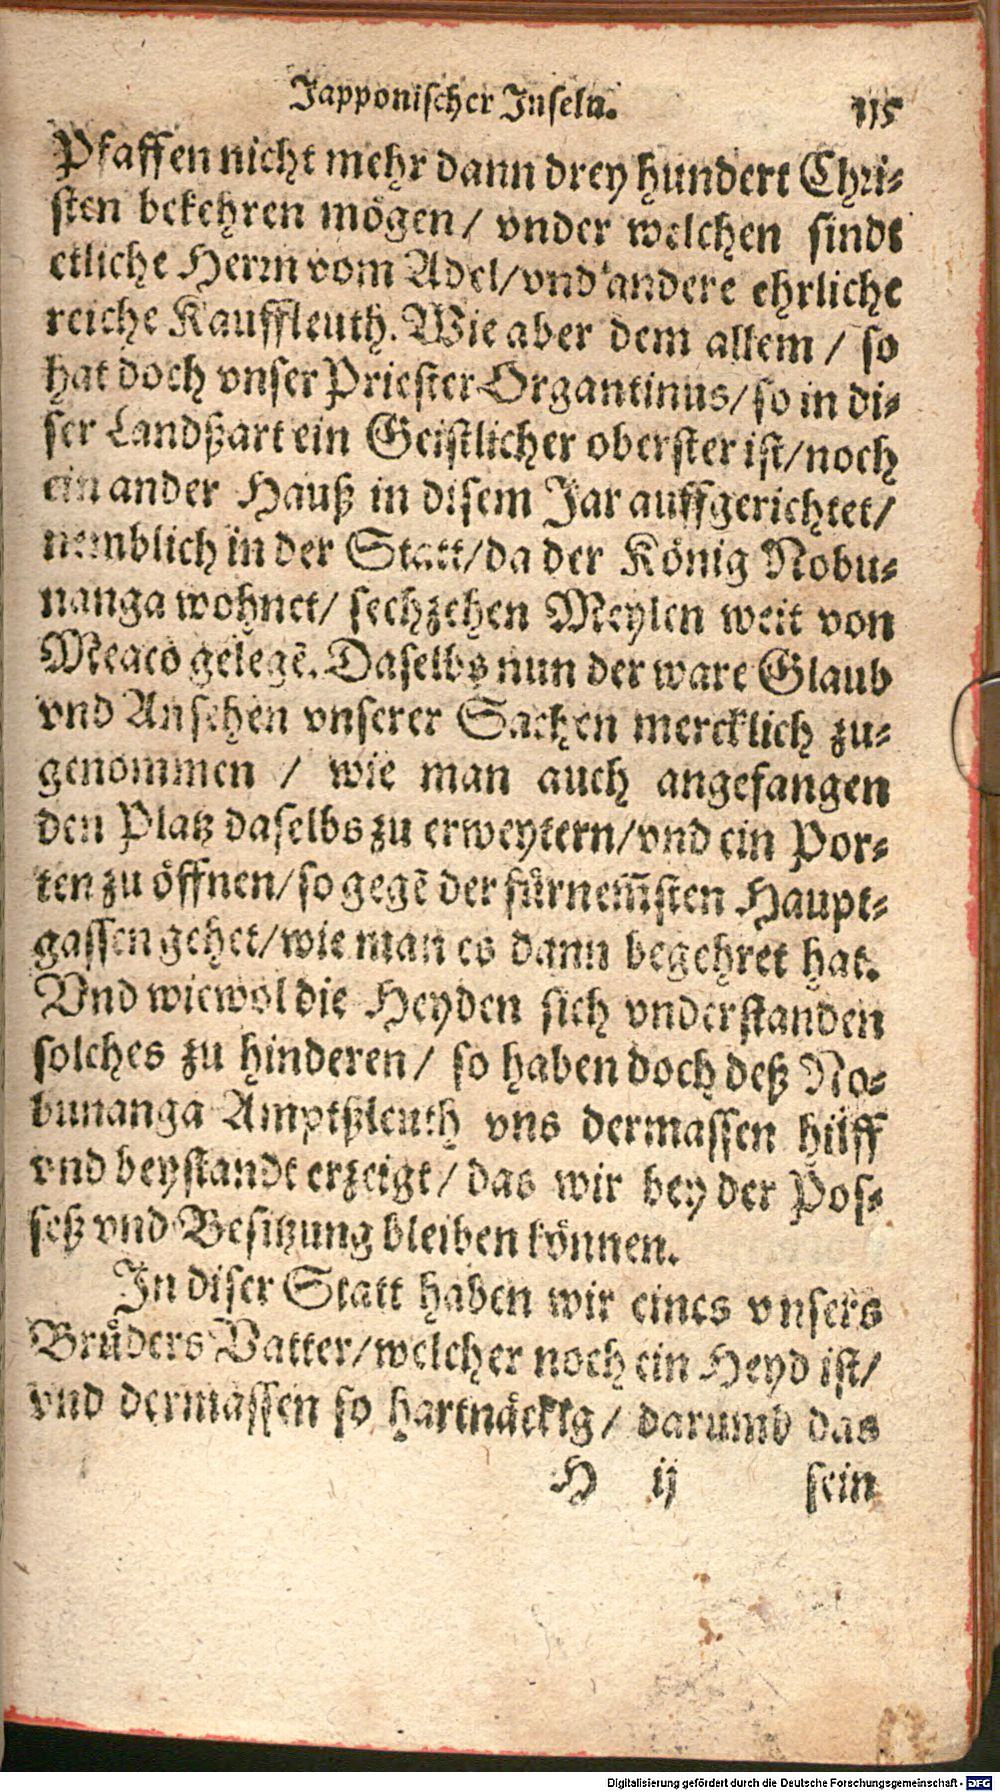 Japponischer Inseln. 115
Pfaffen nicht mehr dann drey hundert Chri-
sten bekehren mögen / vnder welchen sindt
etliche Herrn vom Adel / vnd andere ehrliche
reiche Kauffleuth. Wie aber dem allem / so
hat doch vnser Priester Organtinus / so in di-
ser Landßart ein Geistlicher oberster ist / noch
ein ander Hauß in disem Jar auffgerichtet /
nemblich in der Statt / da der König Nobu-
nanga wohnet / sechzehen Meylen weit von
Meaco gelegē. Daselbs nun der ware Glaub
vnd Ansehen vnserer Sachen mercklich zu-
genommen / wie man auch angefangen
den Platz daselbs zu erweytern / vnd ein Por-
ten zu öffnen / so gegē der fürnem̄sten Haupt-
gassen gehet / wie man es dann begehret hat.
Vnd wiewol die Heyden sich vnderstanden
solches zu hinderen / so haben doch deß No-
bunanga Amptßleuth vns dermassen hilff
vnd beystandt erzeigt / das wir bey der Pos-
seß vnd Besitzung bleiben können.
In diser Statt haben wir eines vnsers
Brůders Vatter / welcher noch ein Heyd ist /
vnd dermassen so hartnäckig / darumb das
H ij sein
Digitalisierung gefördert durch die Deutsche Forschungsgemeinschaft - DFG